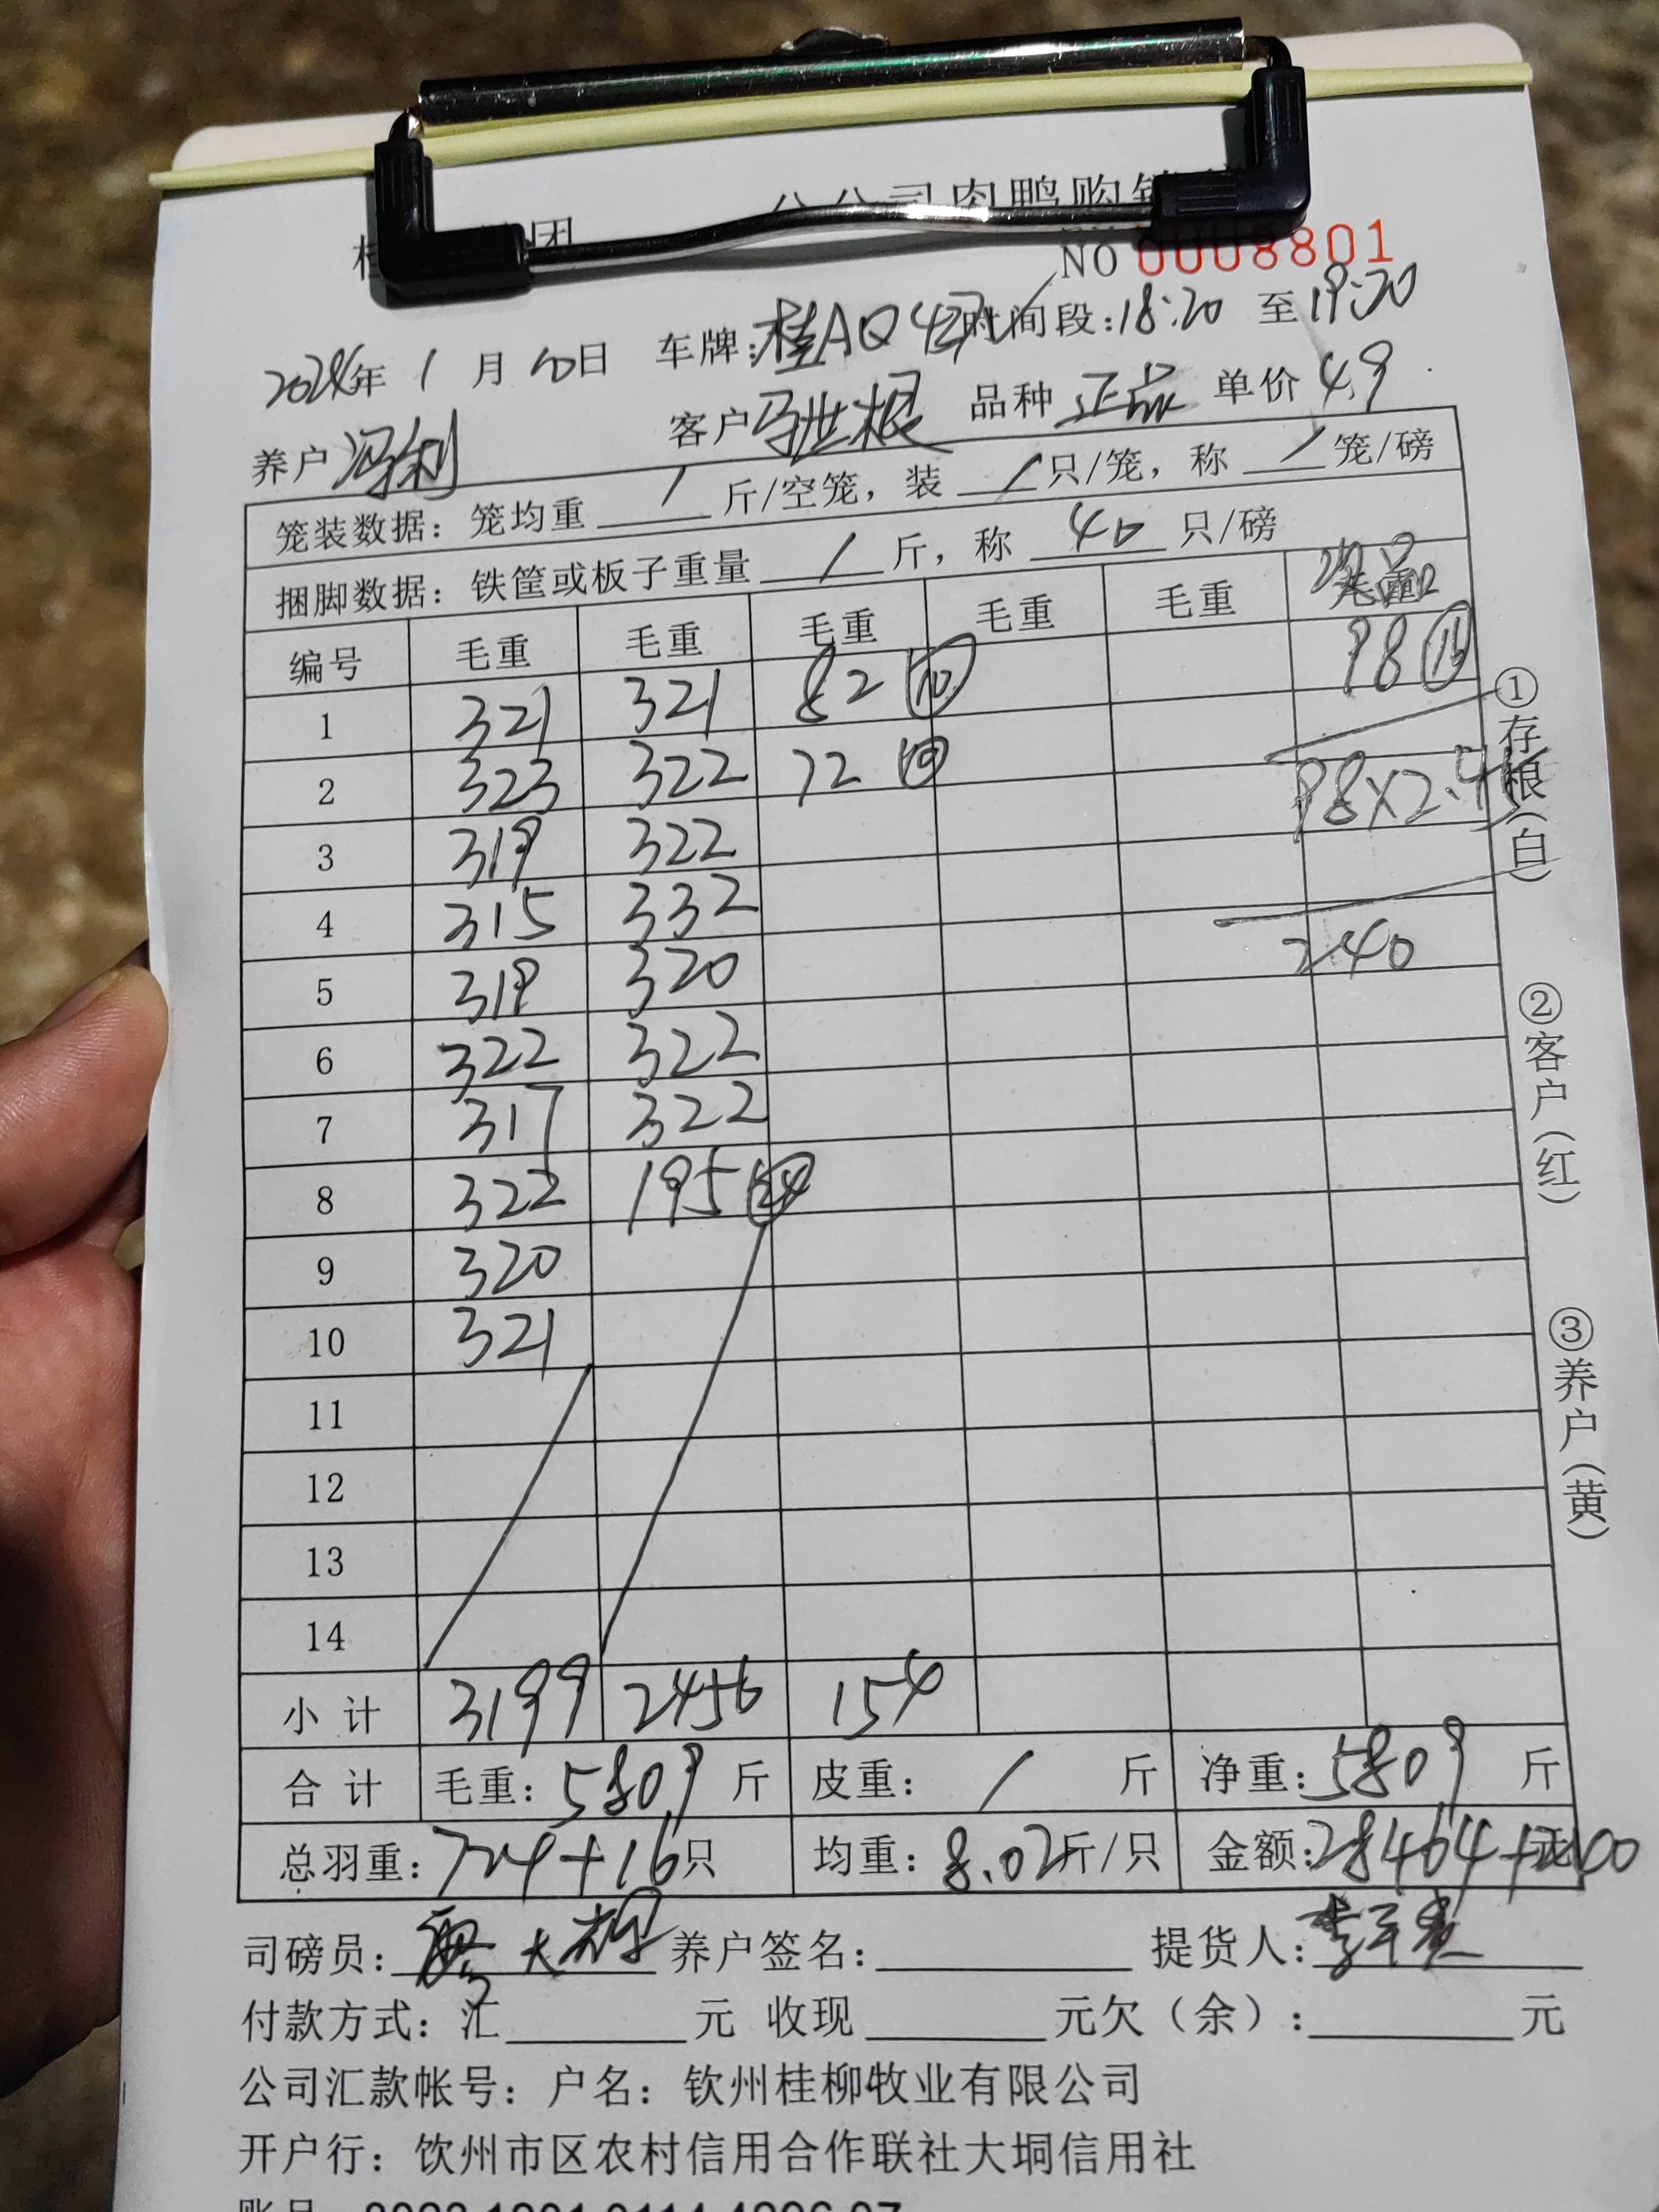 团 分公司肉鸭购销
NO 0008801
2024年 1 月 10日 车牌:桂AQ 时间段:18:20 至19:20
养户 冯利 客户 马世根 品种 正品 单价 4.9
笼装数据: 笼均重 / 斤/空笼, 装 / 只/笼, 称 / 笼/磅
捆脚数据: 铁筐或板子重量 / 斤, 称 40 只/磅
编号 毛重 毛重 毛重 毛重 毛重 毛重
1 321 321 82 ⑩ 98
2 323 322 72 98×2.45
3 319 322
4 315 332 240
5 319 320
6 322 322
7 317 322
8 322 195 24
9 320
10 321
11
12
13
14
小 计 3199 2456 154
合 计 毛重: 5809 斤 皮重: / 斤 净重: 5809 斤
总羽重: 724+16只 均重: 8.02斤/只 金额:28464+240元
司磅员: 廖大 养户签名: 提货人: 李
付款方式: 汇 元 收现 元欠(余): 元
公司汇款帐号: 户名: 钦州桂柳牧业有限公司
开户行: 钦州市区农村信用合作联社大垌信用社
①存根(白)
②客户(红)
③养户(黄)